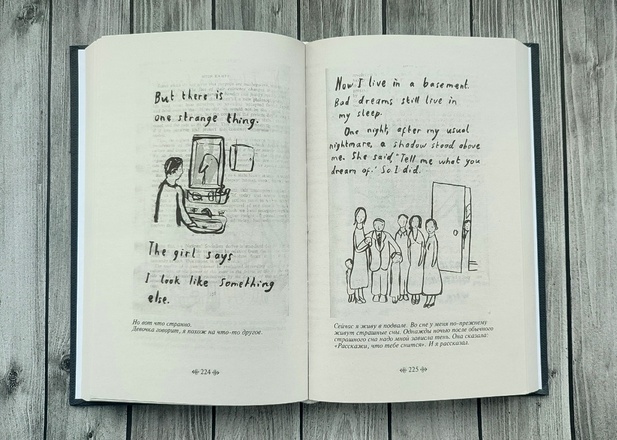 But there is
one strange thing.
The girl says
I look like something
else.
Но вот что странно.
Девочка говорит, я похож на что-то другое.
224
Now I live in a basement.
Bad dreams still live in
my sleep.
One night, after my usual
nightmare, a shadow stood above
me. She said "Tell me what you
dream of." So I did.
Сейчас я живу в подвале. Во сне у меня по-прежнему
живут страшные сны. Однажды ночью после обычного
страшного сна надо мной зависла тень. Она сказала:
«Расскажи, что тебе снится». И я рассказал.
225